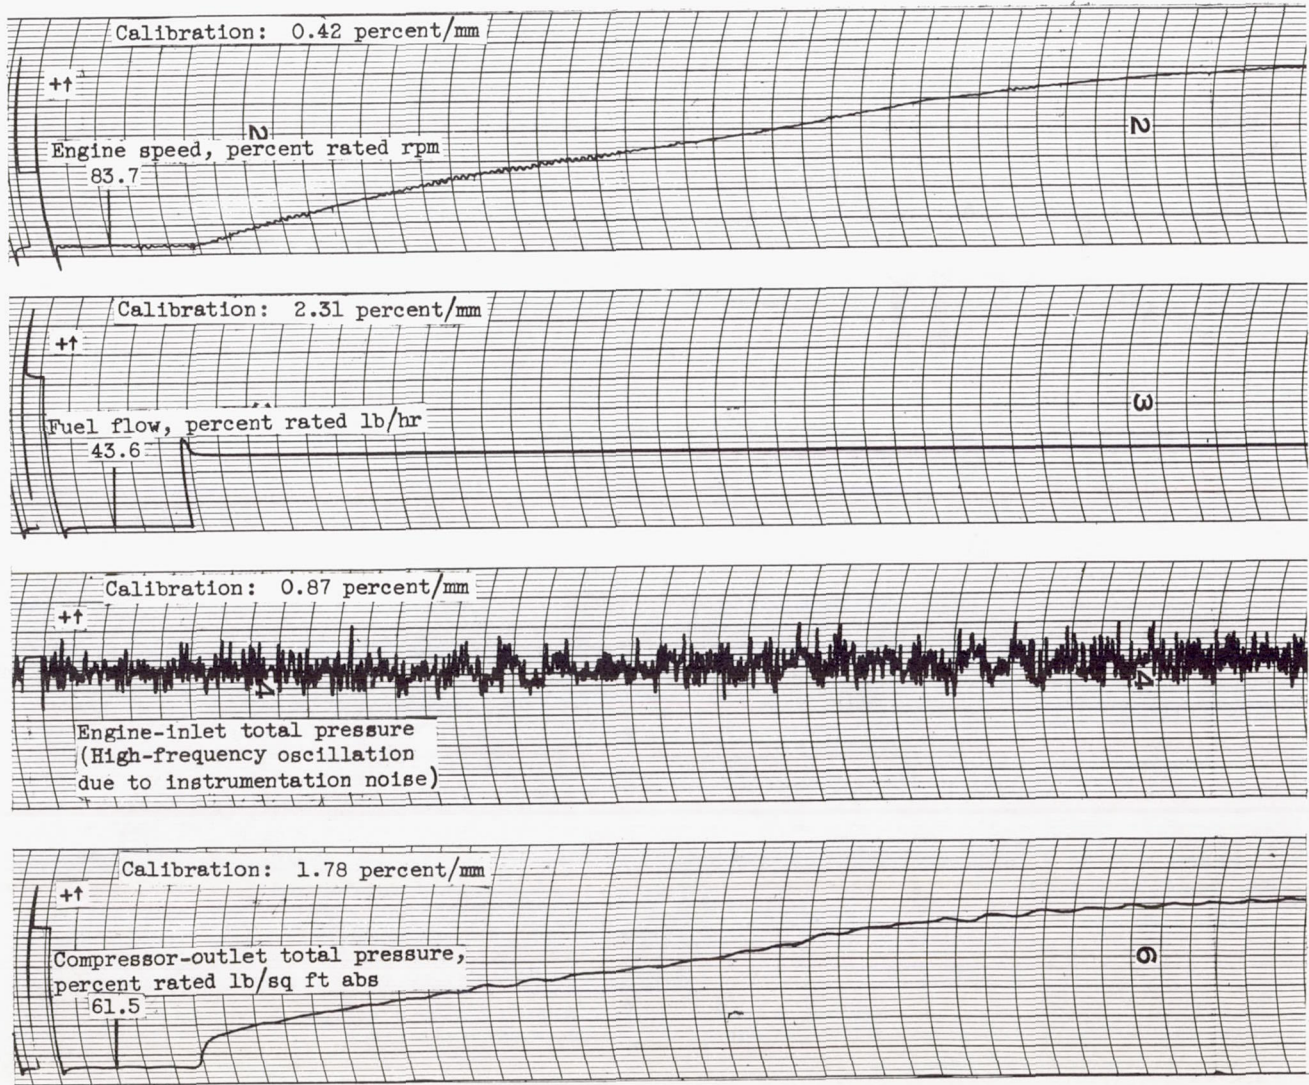 Calibration: 0.42 percent/mm
+↑
2
2
Engine speed, percent rated rpm
83.7
Calibration: 2.31 percent/mm
+↑
3
Fuel flow, percent rated lb/hr
43.6
Calibration: 0.87 percent/mm
+↑
4
4
Engine-inlet total pressure
(High-frequency oscillation
due to instrumentation noise)
Calibration: 1.78 percent/mm
+↑
6
Compressor-outlet total pressure,
percent rated lb/sq ft abs
61.5